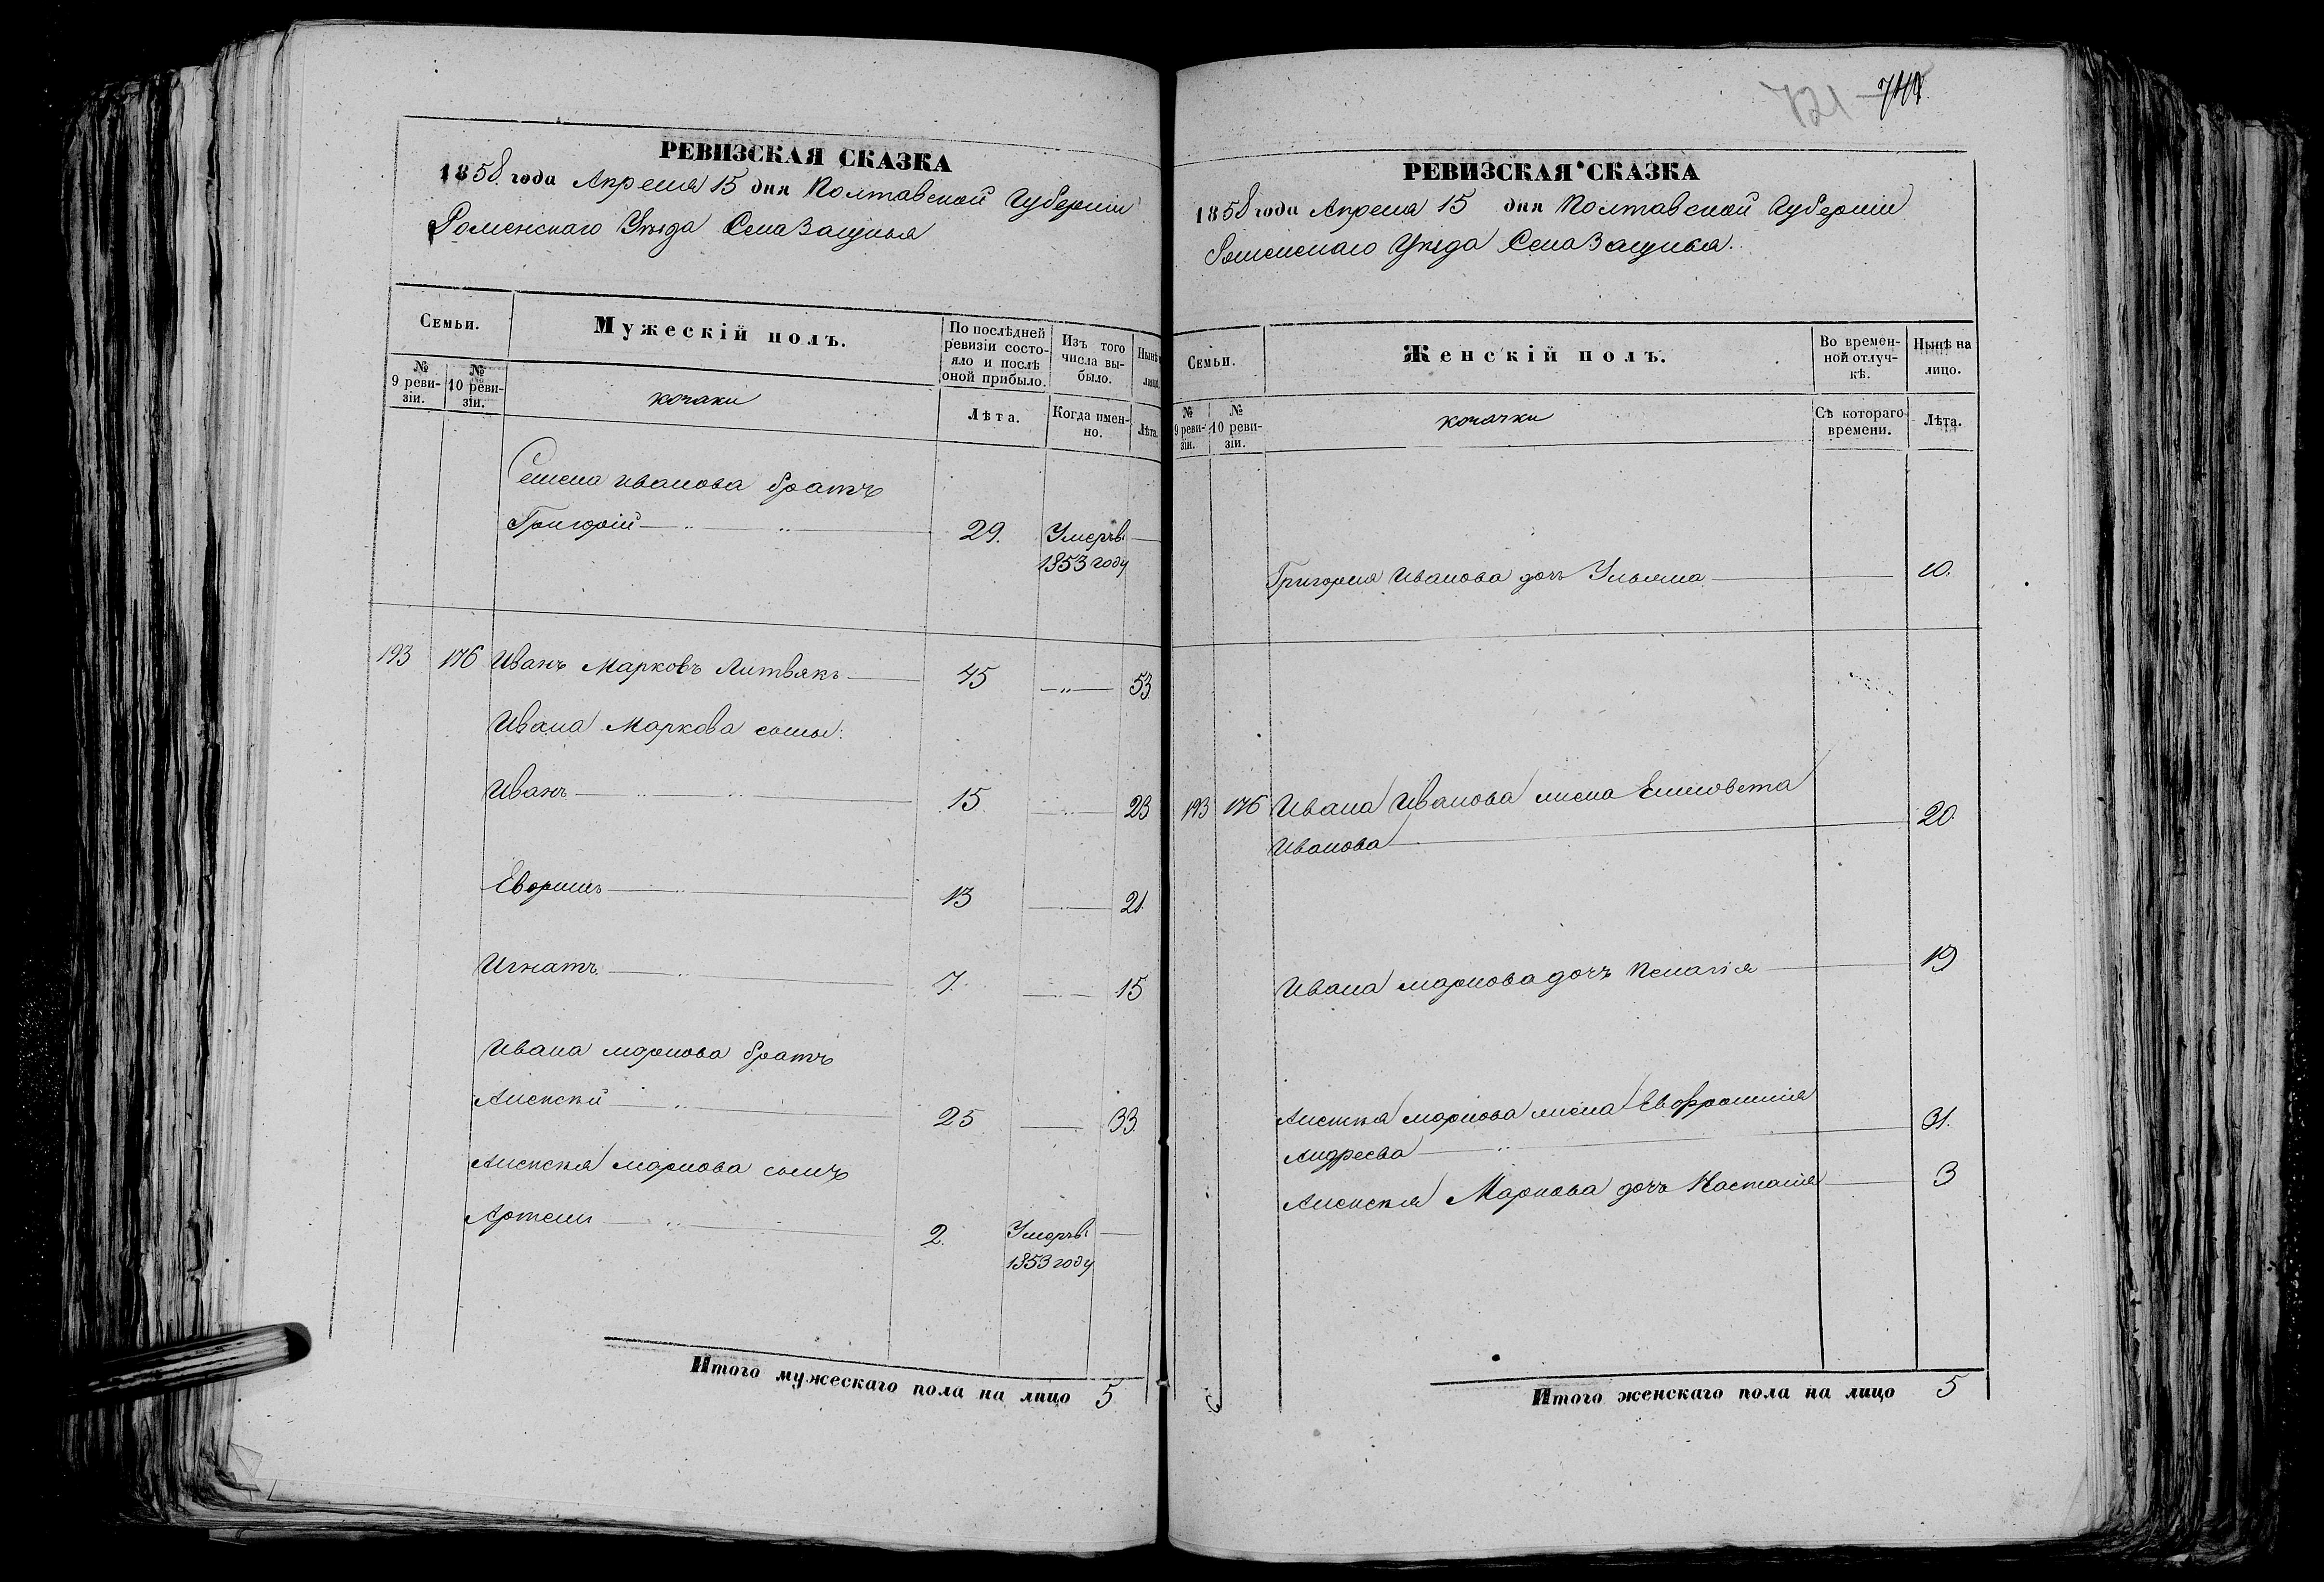 РЕВИЗСКАЯ СКАЗКА
1858 года Апреля 15 дня Полтавской Губерніи
Роменскаго Уѣзда Села Защилья
Семьи.
Мужескій полъ.
По послѣдней ревизіи состояло и послѣ оной прибыло.
Изъ того числа выбыло.
Нынѣ лицо.
№ 9 ревизіи.
№ 10 ревизіи.
козаки
Лѣта.
Когда именно.
Лѣта.
Семена Иванова братъ
Григорій 29. Умеръ в
1853 году
193 176 Иванъ Марковъ Литвякъ 45 53
Ивана Маркова сыны:
Иванъ 15 23
13 21.
Игнатъ 7. 15
Ивана Маркова братъ
Алексѣй 25 33
Алексѣя Маркова сынъ
Артемъ 2. Умеръ в
1853 году
Итого мужескаго пола на лицо 5
721
РЕВИЗСКАЯ СКАЗКА
1858 года Апреля 15 дня Полтавской Губерніи
Роменскаго Уѣзда Села Защилья.
Семьи.
Женскій полъ.
Во временной отлучкѣ.
Нынѣ на лицо.
№ 9 ревизіи.
№ 10 ревизіи.
козачки
Съ котораго времени.
Лѣта.
Григорія Иванова дочь Ульяна 10.
193 176 Ивана Иванова жена Елисовета
Иванова 20
Ивана Маркова дочь Пелагія 19
Алексѣя Маркова жена Евфросинія
Андреева 31.
Алексѣя Маркова дочь Настасія 3
Итого женскаго пола на лицо 5